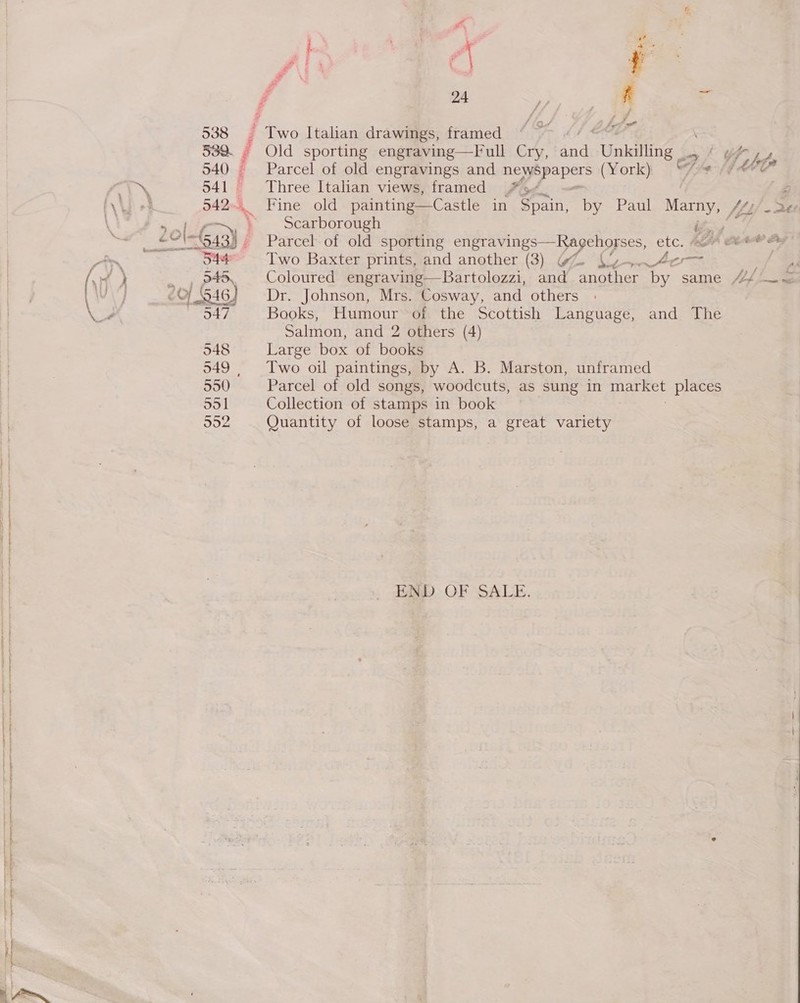 24
538 Two Italian drawings, framed
539. Old sporting engraving—Full Cry, and Unkilling
540 Parcel of old engravings and newspapers (York)
541 Three Italian views, framed
542 Fine old painting—Castle in Spain, by Paul Marny,
Scarborough
543 Parcel of old sporting engravings—Racehorses, etc.
544 Two Baxter prints, and another (3)
545 Coloured engraving—Bartolozzi, and another by same
546 Dr. Johnson, Mrs. Cosway, and others
547 Books, Humour of the Scottish Language, and The
Salmon, and 2 others (4)
548 Large box of books
549 Two oil paintings, by A. B. Marston, unframed
550 Parcel of old songs, woodcuts, as sung in market places
551 Collection of stamps in book
552 Quantity of loose stamps, a great variety
END OF SALE.